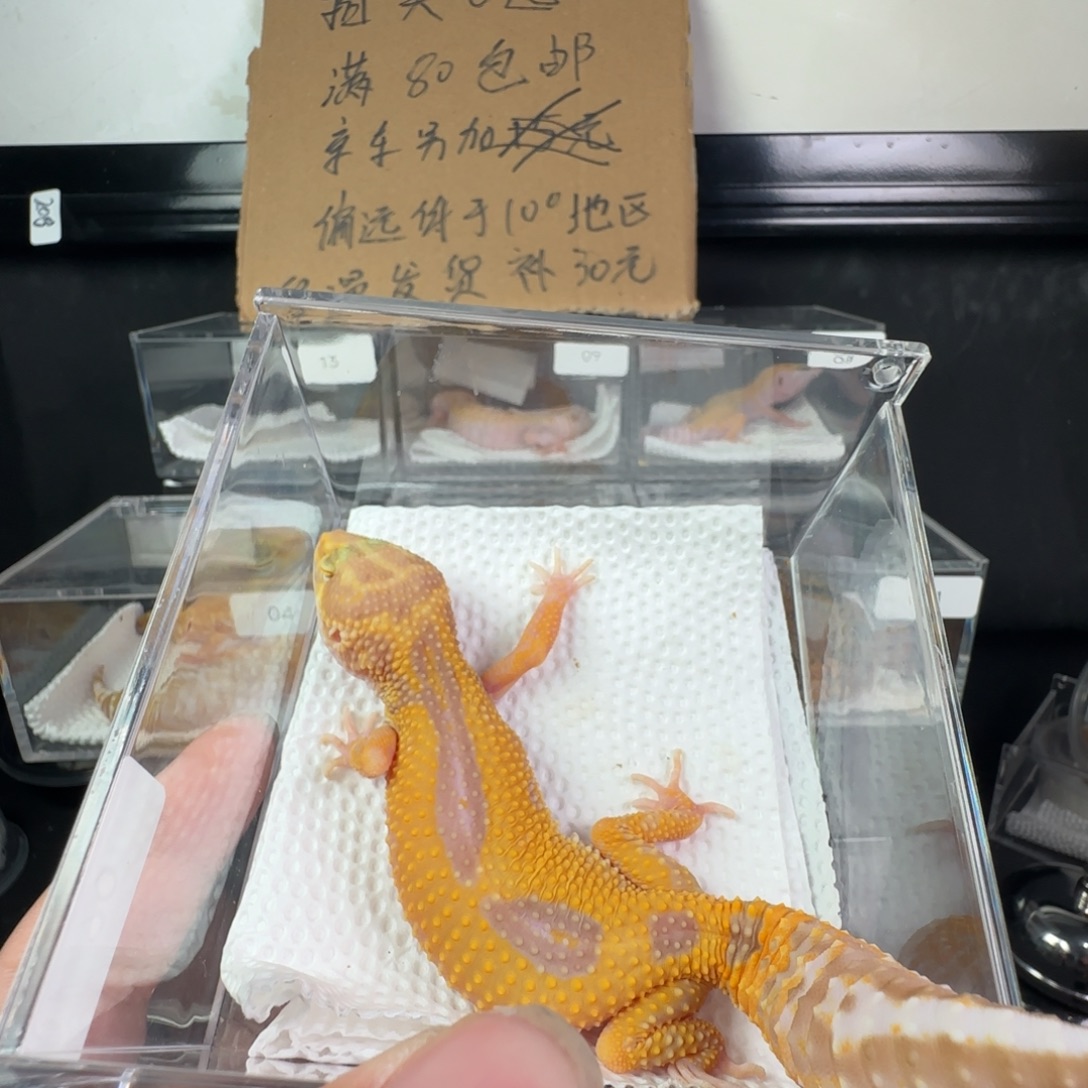 满80包邮
京车另加
偏远低于10°地区
保温发货补30元
208
13
09
04